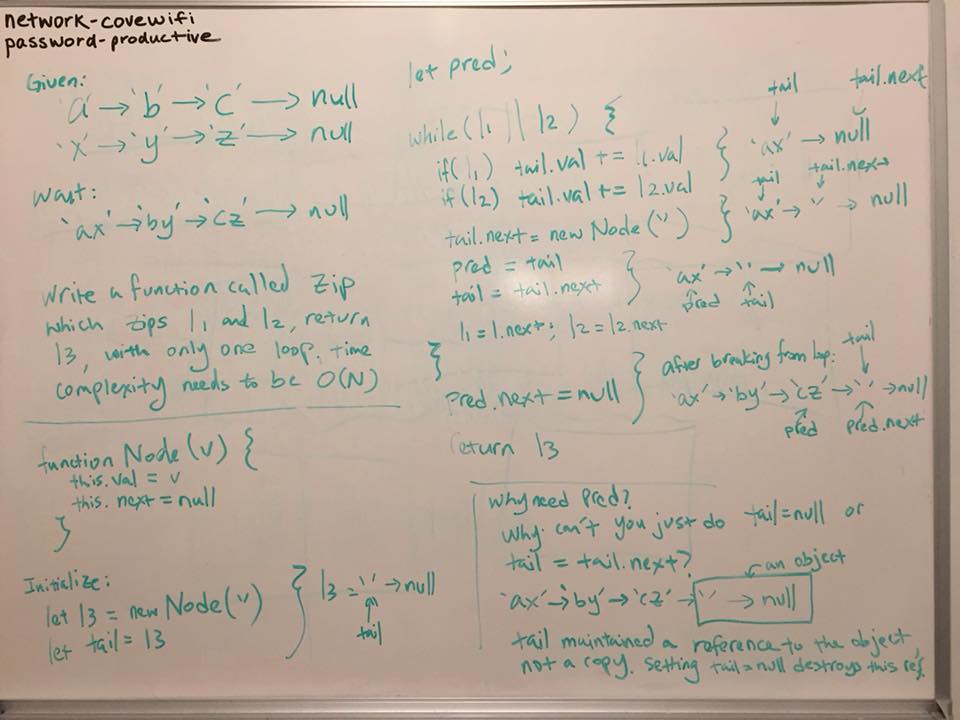 network-covewifi
password-productive
Given:
'a' → 'b' → 'c' → null
'x' → 'y' → 'z' → null
Want:
'ax' → 'by' → 'cz' → null
Write a function called zip
which zips l1 and l2, return
l3, with only one loop. time
complexity needs to be O(N)
function Node(v) {
this.val = v
this.next = null
}
Initialize:
let l3 = new Node('')
let tail = l3
} l3 = '' → null
tail
let pred;
while (l1 || l2) {
if(l1) tail.val += l1.val
if(l2) tail.val += l2.val
tail.next = new Node('')
pred = tail
tail = tail.next
l1 = l.next; l2 = l2.next
}
pred.next = null
return l3
tail tail.next
} 'ax' → null
tail tail.next
} 'ax' → '' → null
} 'ax' → '' → null
pred tail
} after breaking from loop: tail
'ax' → 'by' → 'cz' → '' → null
pred pred.next
Why need pred?
Why can't you just do tail=null or
tail = tail.next?
an object
'ax' → 'by' → 'cz' → '' → null
tail maintained a reference to the object,
not a copy. Setting tail=null destroys this ref.